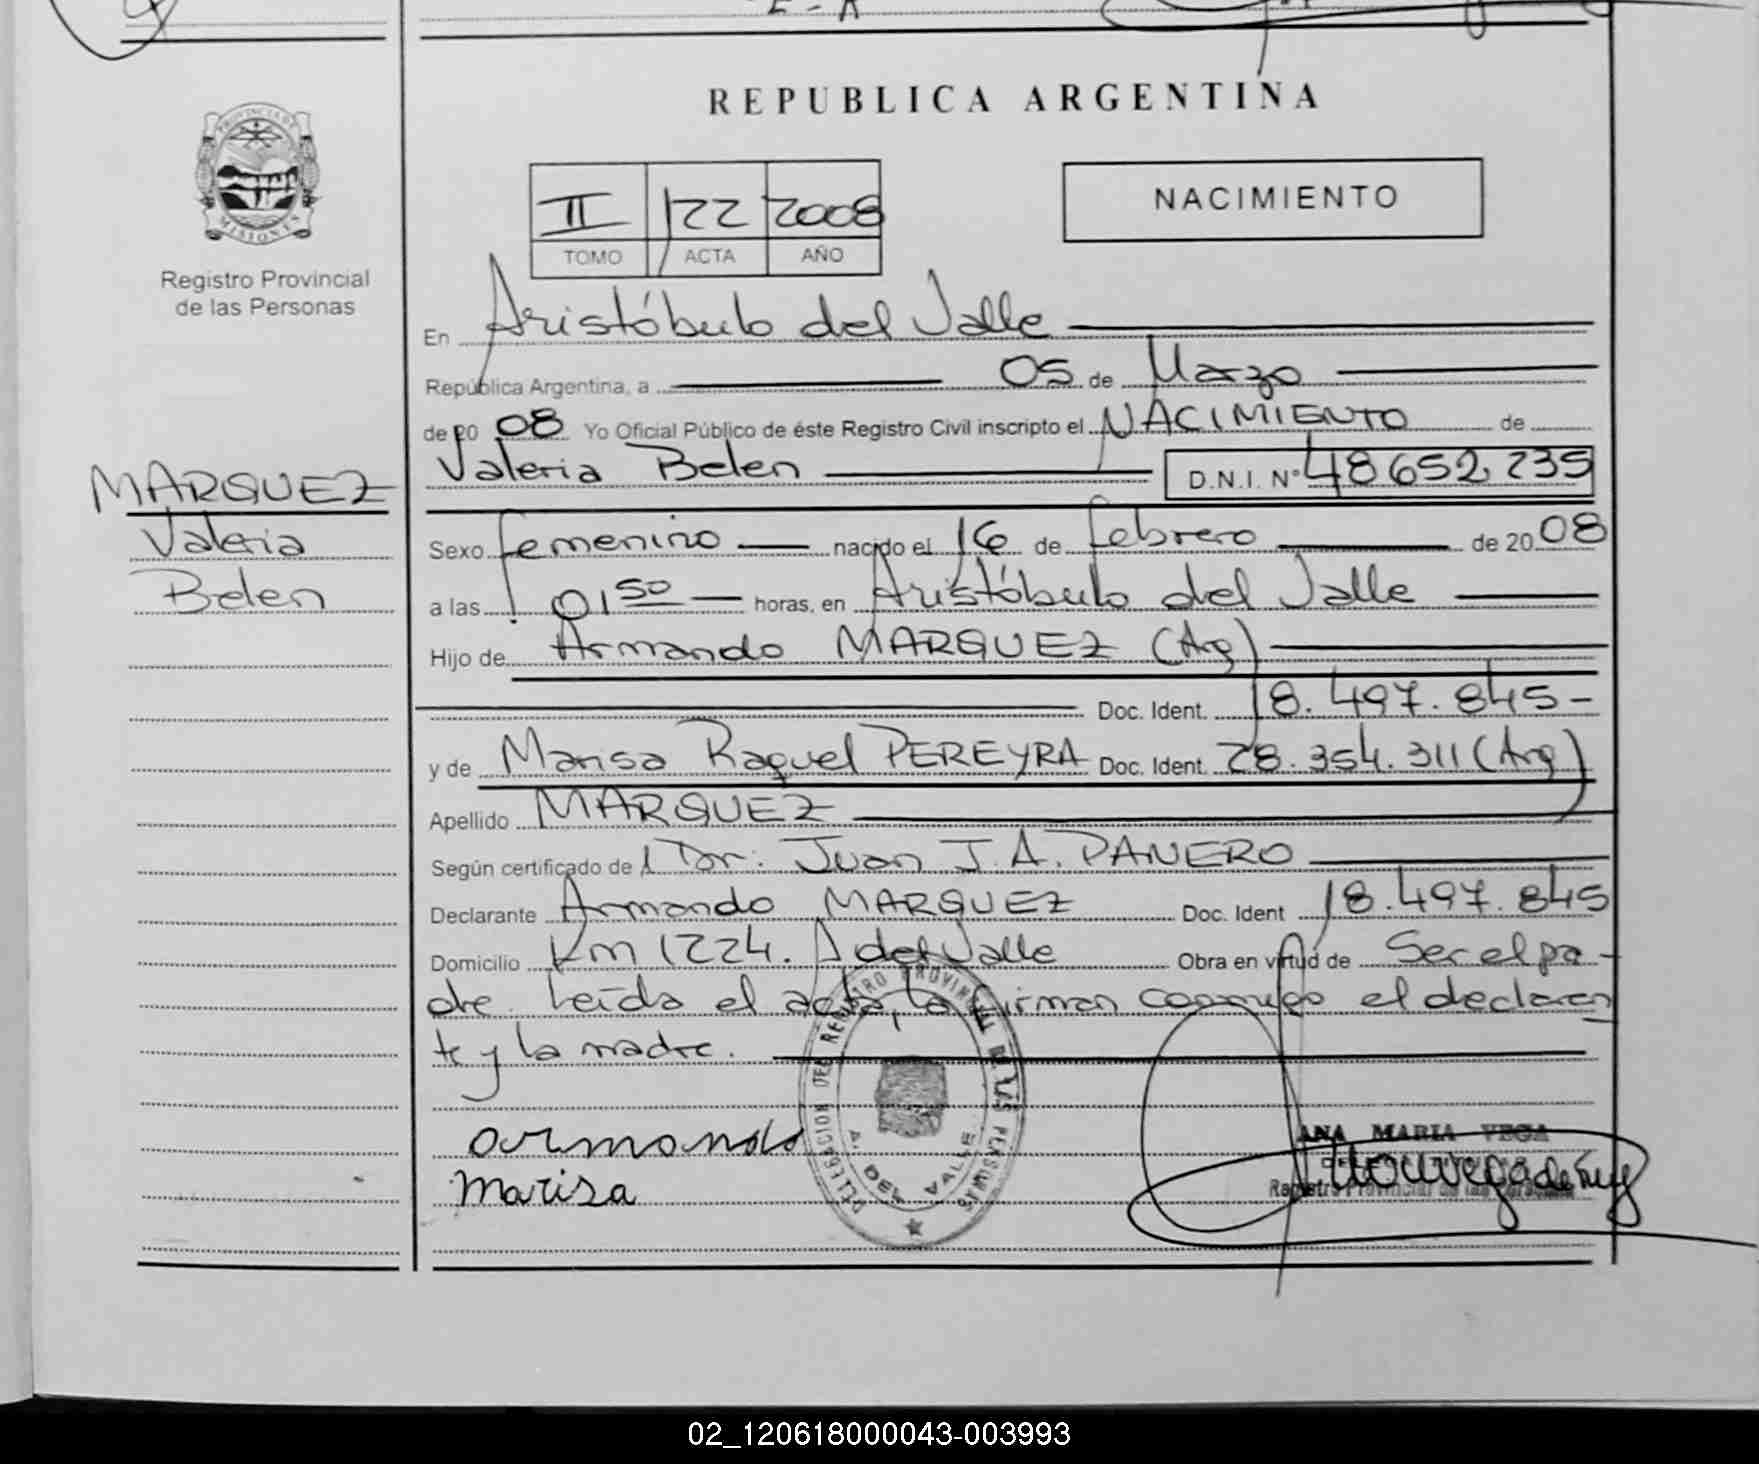 REPUBLICA ARGENTINA
PROVINCIA DE
MISIONES
Registro Provincial
de las Personas
II 122 2008
TOMO ACTA AÑO
NACIMIENTO
En Aristóbulo del Valle
República Argentina, a 05 de Marzo
de 20 08 Yo Oficial Público de éste Registro Civil inscripto el NACIMIENTO de
Valeria Belen D.N.I. Nº 48652235
MARQUEZ
Valeria
Belen
Sexo femenino nacido el 16 de febrero de 20 08
a las 01 50 horas, en Aristóbulo del Valle
Hijo de Armando MARQUEZ (Arg)
Doc. Ident. 18.497.845-
y de Marisa Raquel PEREYRA Doc. Ident. 28.354.311 (Arg)
Apellido MARQUEZ
Según certificado de l Dr. Juan J. A. PANERO
Declarante Armando MARQUEZ Doc. Ident 18.497.845
Domicilio Km 1224. A del Valle Obra en virtud de Ser el pa-
dre. Leída el acta, la firman conmigo el declaran
te y la madre.
DELEGACION DEL REGISTRO PROVINCIAL DE LAS PERSONAS
A. DEL VALLE
armando
Marisa
ANA MARIA VEGA
Registro Provincial de las Personas
02_120618000043-003993